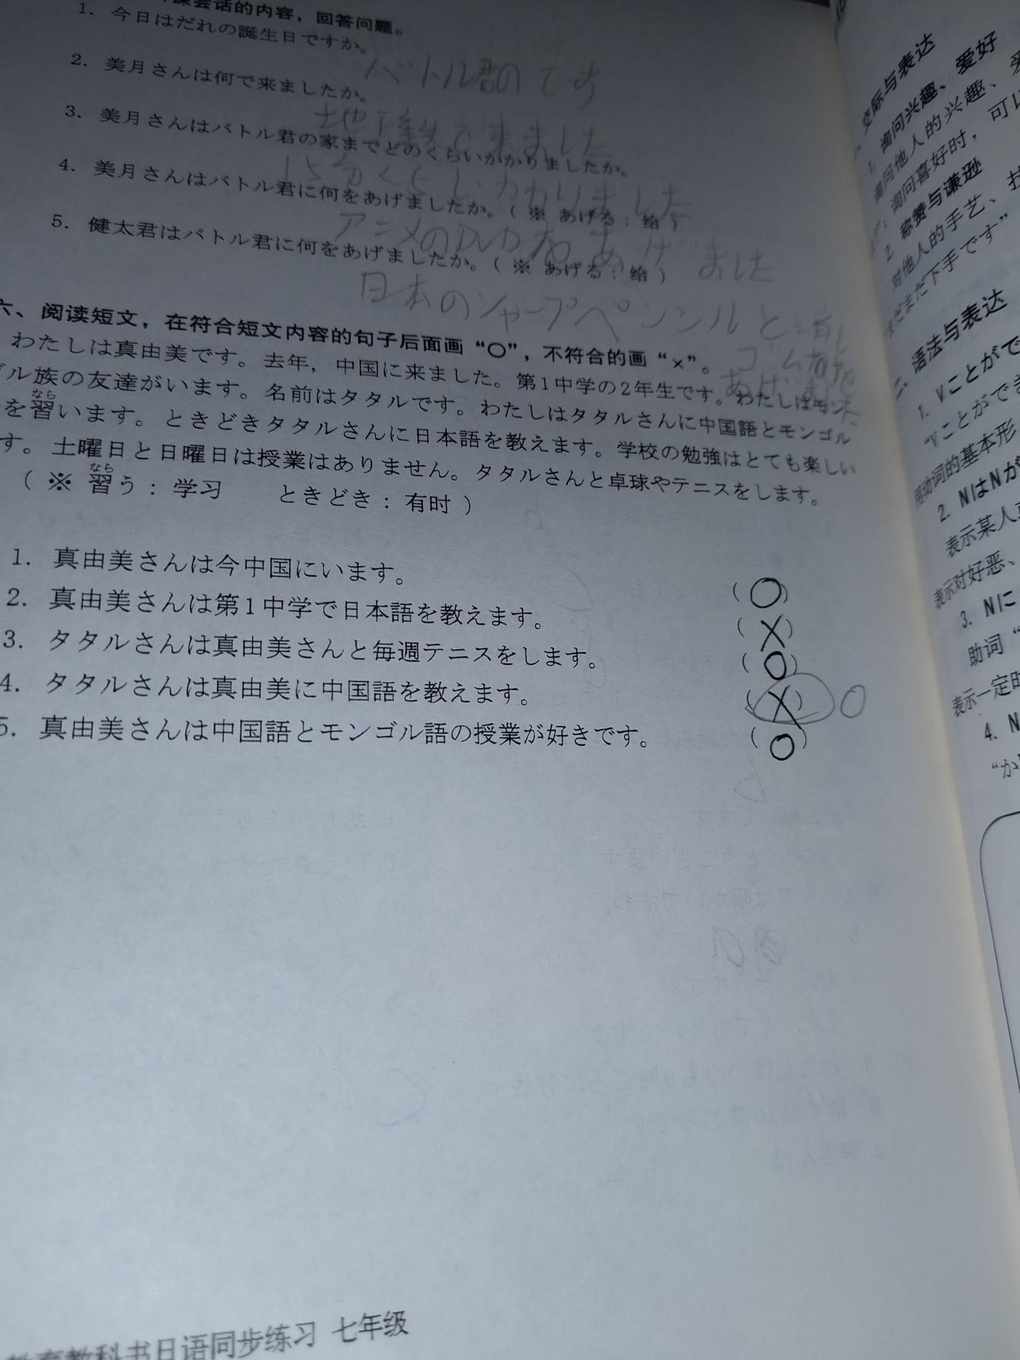 课会话的内容，回答问题。
1. 今日はだれの誕生日ですか。
バトル君のです
2. 美月さんは何で来ましたか。
地下鉄で来ました
3. 美月さんはバトル君の家までどのくらいかかりましたか。
15分くらいかかりました
4. 美月さんはバトル君に何をあげましたか。（※ あげる：给）
アニメのDVDをあげました
5. 健太君はバトル君に何をあげましたか。（※ あげる：给）
日本のシャープペンシルと消しゴム
あげました
六、阅读短文，在符合短文内容的句子后面画“○”，不符合的画“×”。
わたしは真由美です。去年，中国に来ました。第1中学の2年生です。わたしはモン
ゴル族の友達がいます。名前はタタルです。わたしはタタルさんに中国語とモンゴル
を習います。ときどきタタルさんに日本語を教えます。学校の勉強はとても楽しい
なら
す。土曜日と日曜日は授業はありません。タタルさんと卓球やテニスをします。
なら
（※ 習う：学习 ときどき：有时）
1. 真由美さんは今中国にいます。 (○)
2. 真由美さんは第1中学で日本語を教えます。 (×)
3. タタルさんは真由美さんと毎週テニスをします。 (○)
4. タタルさんは真由美に中国語を教えます。 (×) ○
5. 真由美さんは中国語とモンゴル語の授業が好きです。 (○)
教育教科书日语同步练习 七年级
交际与表达
1. 询问兴趣、爱好
询问他人的兴趣、爱
询问喜好时，可以
2. 称赞与谦逊
对他人的手艺、技
まだ下手です”
二、语法与表达
1. Vことがで
“Vことができ
用动词的基本形
2. NはNが
表示某人
表示对好恶、
3. Nに
助词“
表示一定时
4. N
“か